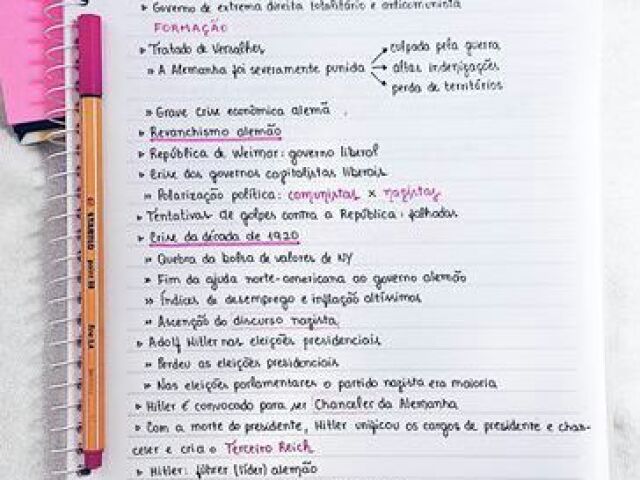 ▹ Governo de extrema direita totalitário e anticomunista
FORMAÇÃO
▹ Tratado de Versalhes
» A Alemanha foi severamente punida → culpada pela guerra
→ altas indenizações
→ perda de territórios
» Grave crise econômica alemã.
▹ Revanchismo alemão
▹ República de Weimar: governo liberal
▹ Crise dos governos capitalistas liberais
» Polarização política: comunistas x nazistas
▹ Tentativas de golpes contra a República: falhadas
▹ Crise da década de 1920
» Quebra da bolsa de valores de NY
» Fim da ajuda norte-americana ao governo alemão
» Índices de desemprego e inflação altíssimos
» Ascenção do discurso nazista
▹ Adolf Hitler nas eleições presidenciais
» Perdeu as eleições presidenciais
» Nas eleições parlamentares o partido nazista era maioria
▹ Hitler é convocado para ser Chanceler da Alemanha
▹ Com a morte do presidente, Hitler unificou os cargos de presidente e chan-
celer e cria o Terceiro Reich
▹ Hitler: führer (líder) alemão
STABILO point 88